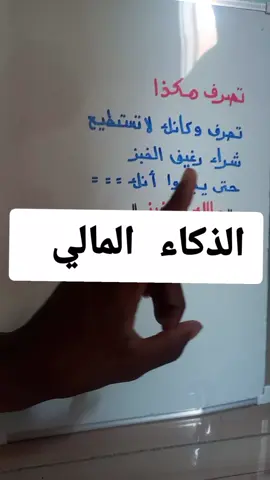 تصرف هكذا
تصرف وكأنك لا تستطيع
شراء رغيف الخبز
حتى أنك ===
الذكاء المالي